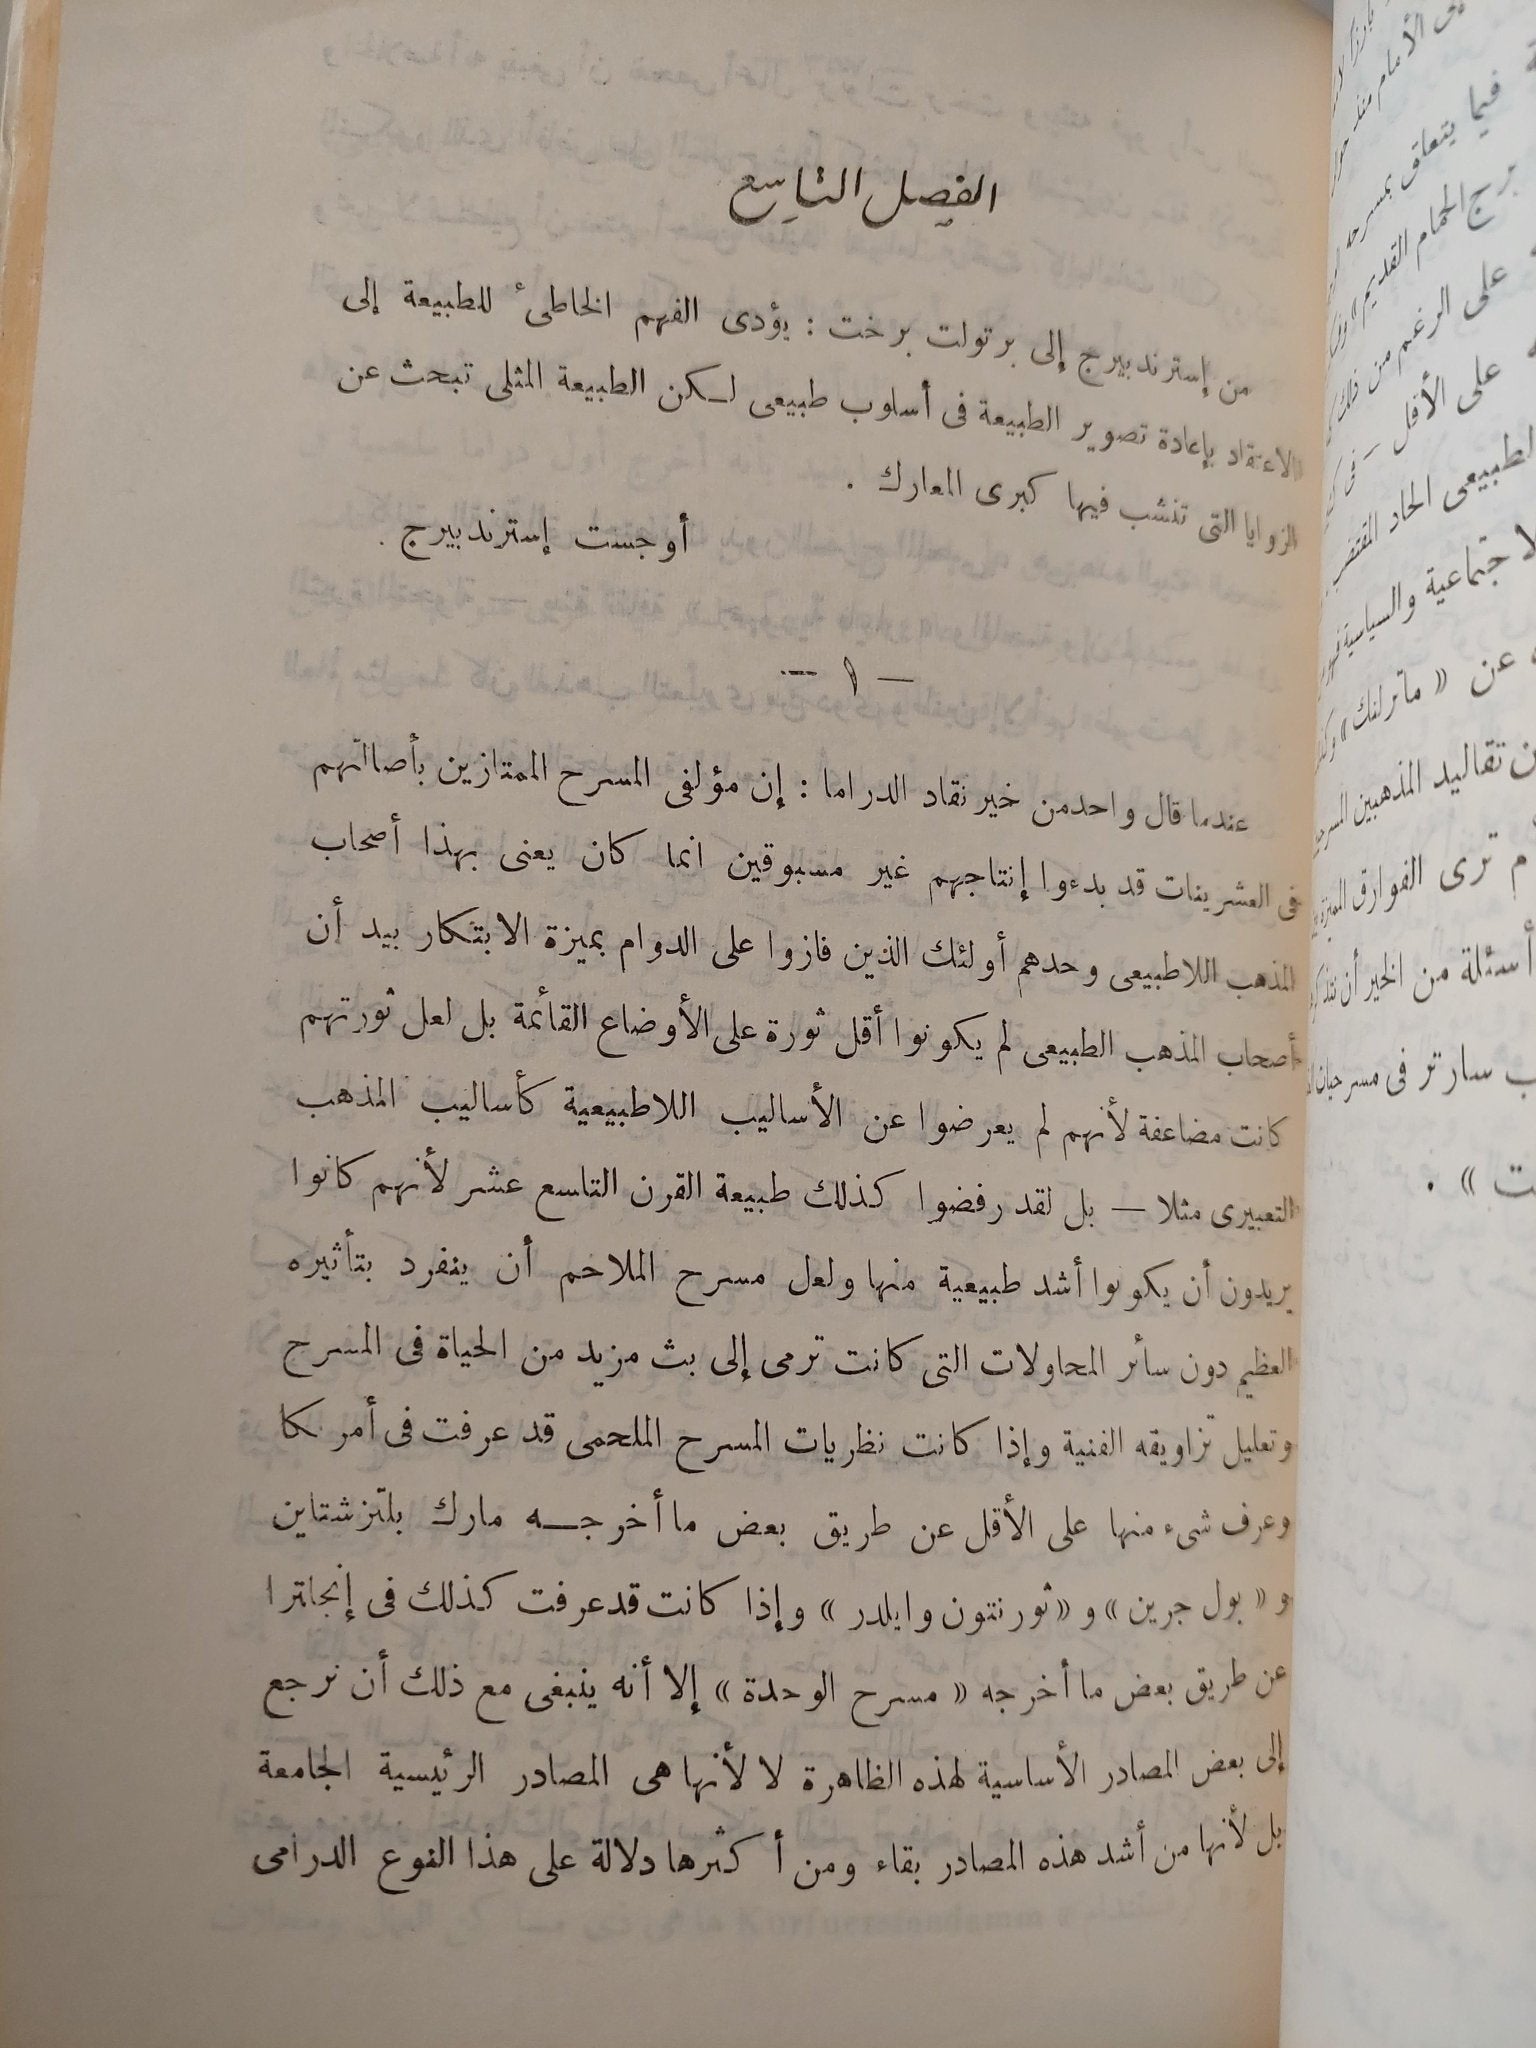 الفصل التاسع
من إسترندبيرج إلى برتولت برخت : يؤدى الفهم الخاطئ للطبيعة إلى
الاعتقاد بإعادة تصوير الطبيعة فى أسلوب طبيعى لـكن الطبيعة المثلى تبحث عن
الزوايا التى تنشب فيها كبرى المعارك .
أوجست إسترندبيرج .
— ١ —
عندما قال واحد من خير نقاد الدراما : إن مؤلفى المسرح الممتازين بأصالتهم
فى العشرينات قد بدءوا إنتاجهم غير مسبوقين انما كان يعنى بهذا أصحاب
المذهب اللاطبيعى وحدهم أولئك الذين فازوا على الدوام بميزة الابتكار بيد أن
أصحاب المذهب الطبيعى لم يكونوا أقل ثورة على الأوضاع القائمة بل لعل ثورتهم
كانت مضاعفة لأنهم لم يعرضوا عن الأساليب اللاطبيعية كأساليب المذهب
التعبيرى مثلا — بل لقد رفضوا كذلك طبيعة القرن التاسع عشر لأنهم كانوا
يريدون أن يكونوا أشد طبيعية منها ولعل مسرح الملاحم أن ينفرد بتأثيره
العظيم دون سائر المحاولات التى كانت ترمى إلى بث مزيد من الحياة فى المسرح
وتعليل تزاويقه الفنية وإذا كانت نظريات المسرح الملحمى قد عرفت فى أمر كا
وعرف شىء منها على الأقل عن طريق بعض ما أخرجـــه مارك بلتزشتاين
و « بول جرين » و « ثورنتون وايلدر » وإذا كانت قد عرفت كذلك فى إنجلترا
عن طريق بعض ما أخرجه « مسرح الوحدة » إلا أنه ينبغى مع ذلك أن نرجع
إلى بعض المصادر الأساسية لهذه الظاهرة لا لأنها هى المصادر الرئيسية الجامعة
بل لأنها من أشد هذه المصادر بقاء ومن أكثرها دلالة على هذا النوع الدرامى
فيما يتعلق بمسرحه
برج الحمام القديم »
على الرغم من ذلك
على الأقل – فى
الطبيعى الحاد
الاجتماعية والسياسية
عن « ماترلنك »
تقاليد المذهبين
ترى الفوارق
أسئلة من الخير أن
سارتر فى